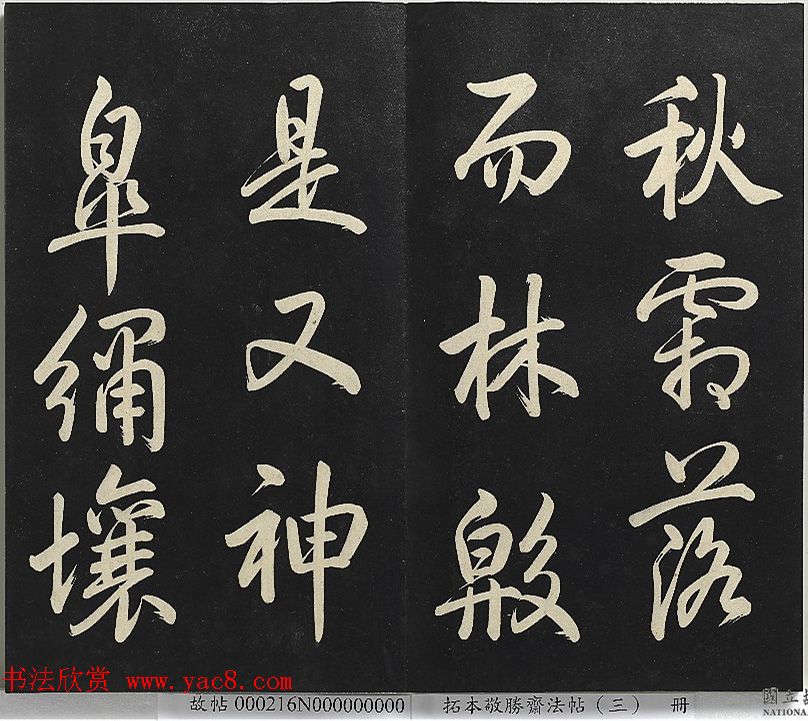 秋霜落
而林殷
是又神
皐繡壤
书法欣赏 www.yac8.com
故帖 000216N000000000
拓本敬勝齋法帖（三） 册
國立
NATIONA